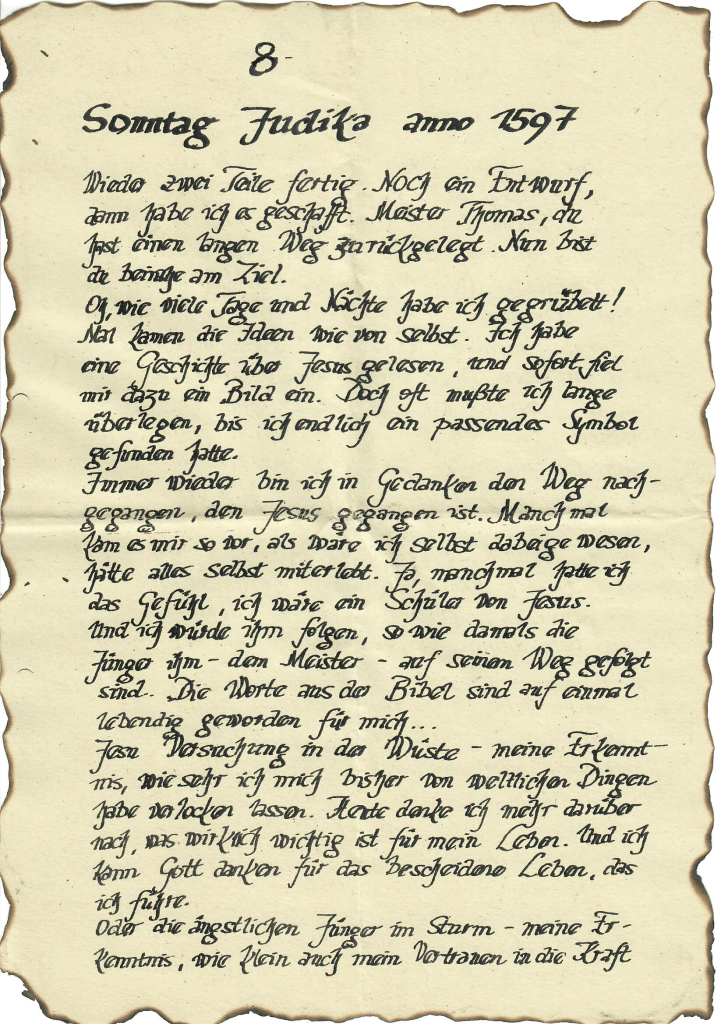 8-
Sonntag Judika anno 1597
Wieder zwei Teile fertig. Noch ein Entwurf,
dann habe ich es geschafft. Meister Thomas, du
hast einen langen Weg zurückgelegt. Nun bist
du beinahe am Ziel.
Oh, wie viele Tage und Nächte habe ich gegrübelt!
Mal kamen die Ideen wie von selbst. Ich habe
eine Geschichte über Jesus gelesen, und sofort fiel
mir dazu ein Bild ein. Doch oft mußte ich lange
überlegen, bis ich endlich ein passendes Symbol
gefunden hatte.
Immer wieder bin ich in Gedanken den Weg nach-
gegangen, den Jesus gegangen ist. Manchmal
kam es mir so vor, als wäre ich selbst dabeigewesen,
hätte alles selbst miterlebt. Ja, manchmal hatte ich
das Gefühl, ich wäre ein Schüler von Jesus.
Und ich würde ihm folgen, so wie damals die
Jünger ihm - dem Meister - auf seinem Weg gefolgt
sind. Die Worte aus der Bibel sind auf einmal
lebendig geworden für mich...
Jesu Versuchung in der Wüste - meine Erkennt-
nis, wie sehr ich mich bisher von weltlichen Dingen
habe verlocken lassen. Heute denke ich mehr darüber
nach, was wirklich wichtig ist für mein Leben. Und ich
kann Gott danken für das bescheidene Leben, das
ich führe.
Oder die ängstlichen Jünger im Sturm - meine Er-
kenntnis, wie klein auch mein Vertrauen in die Kraft